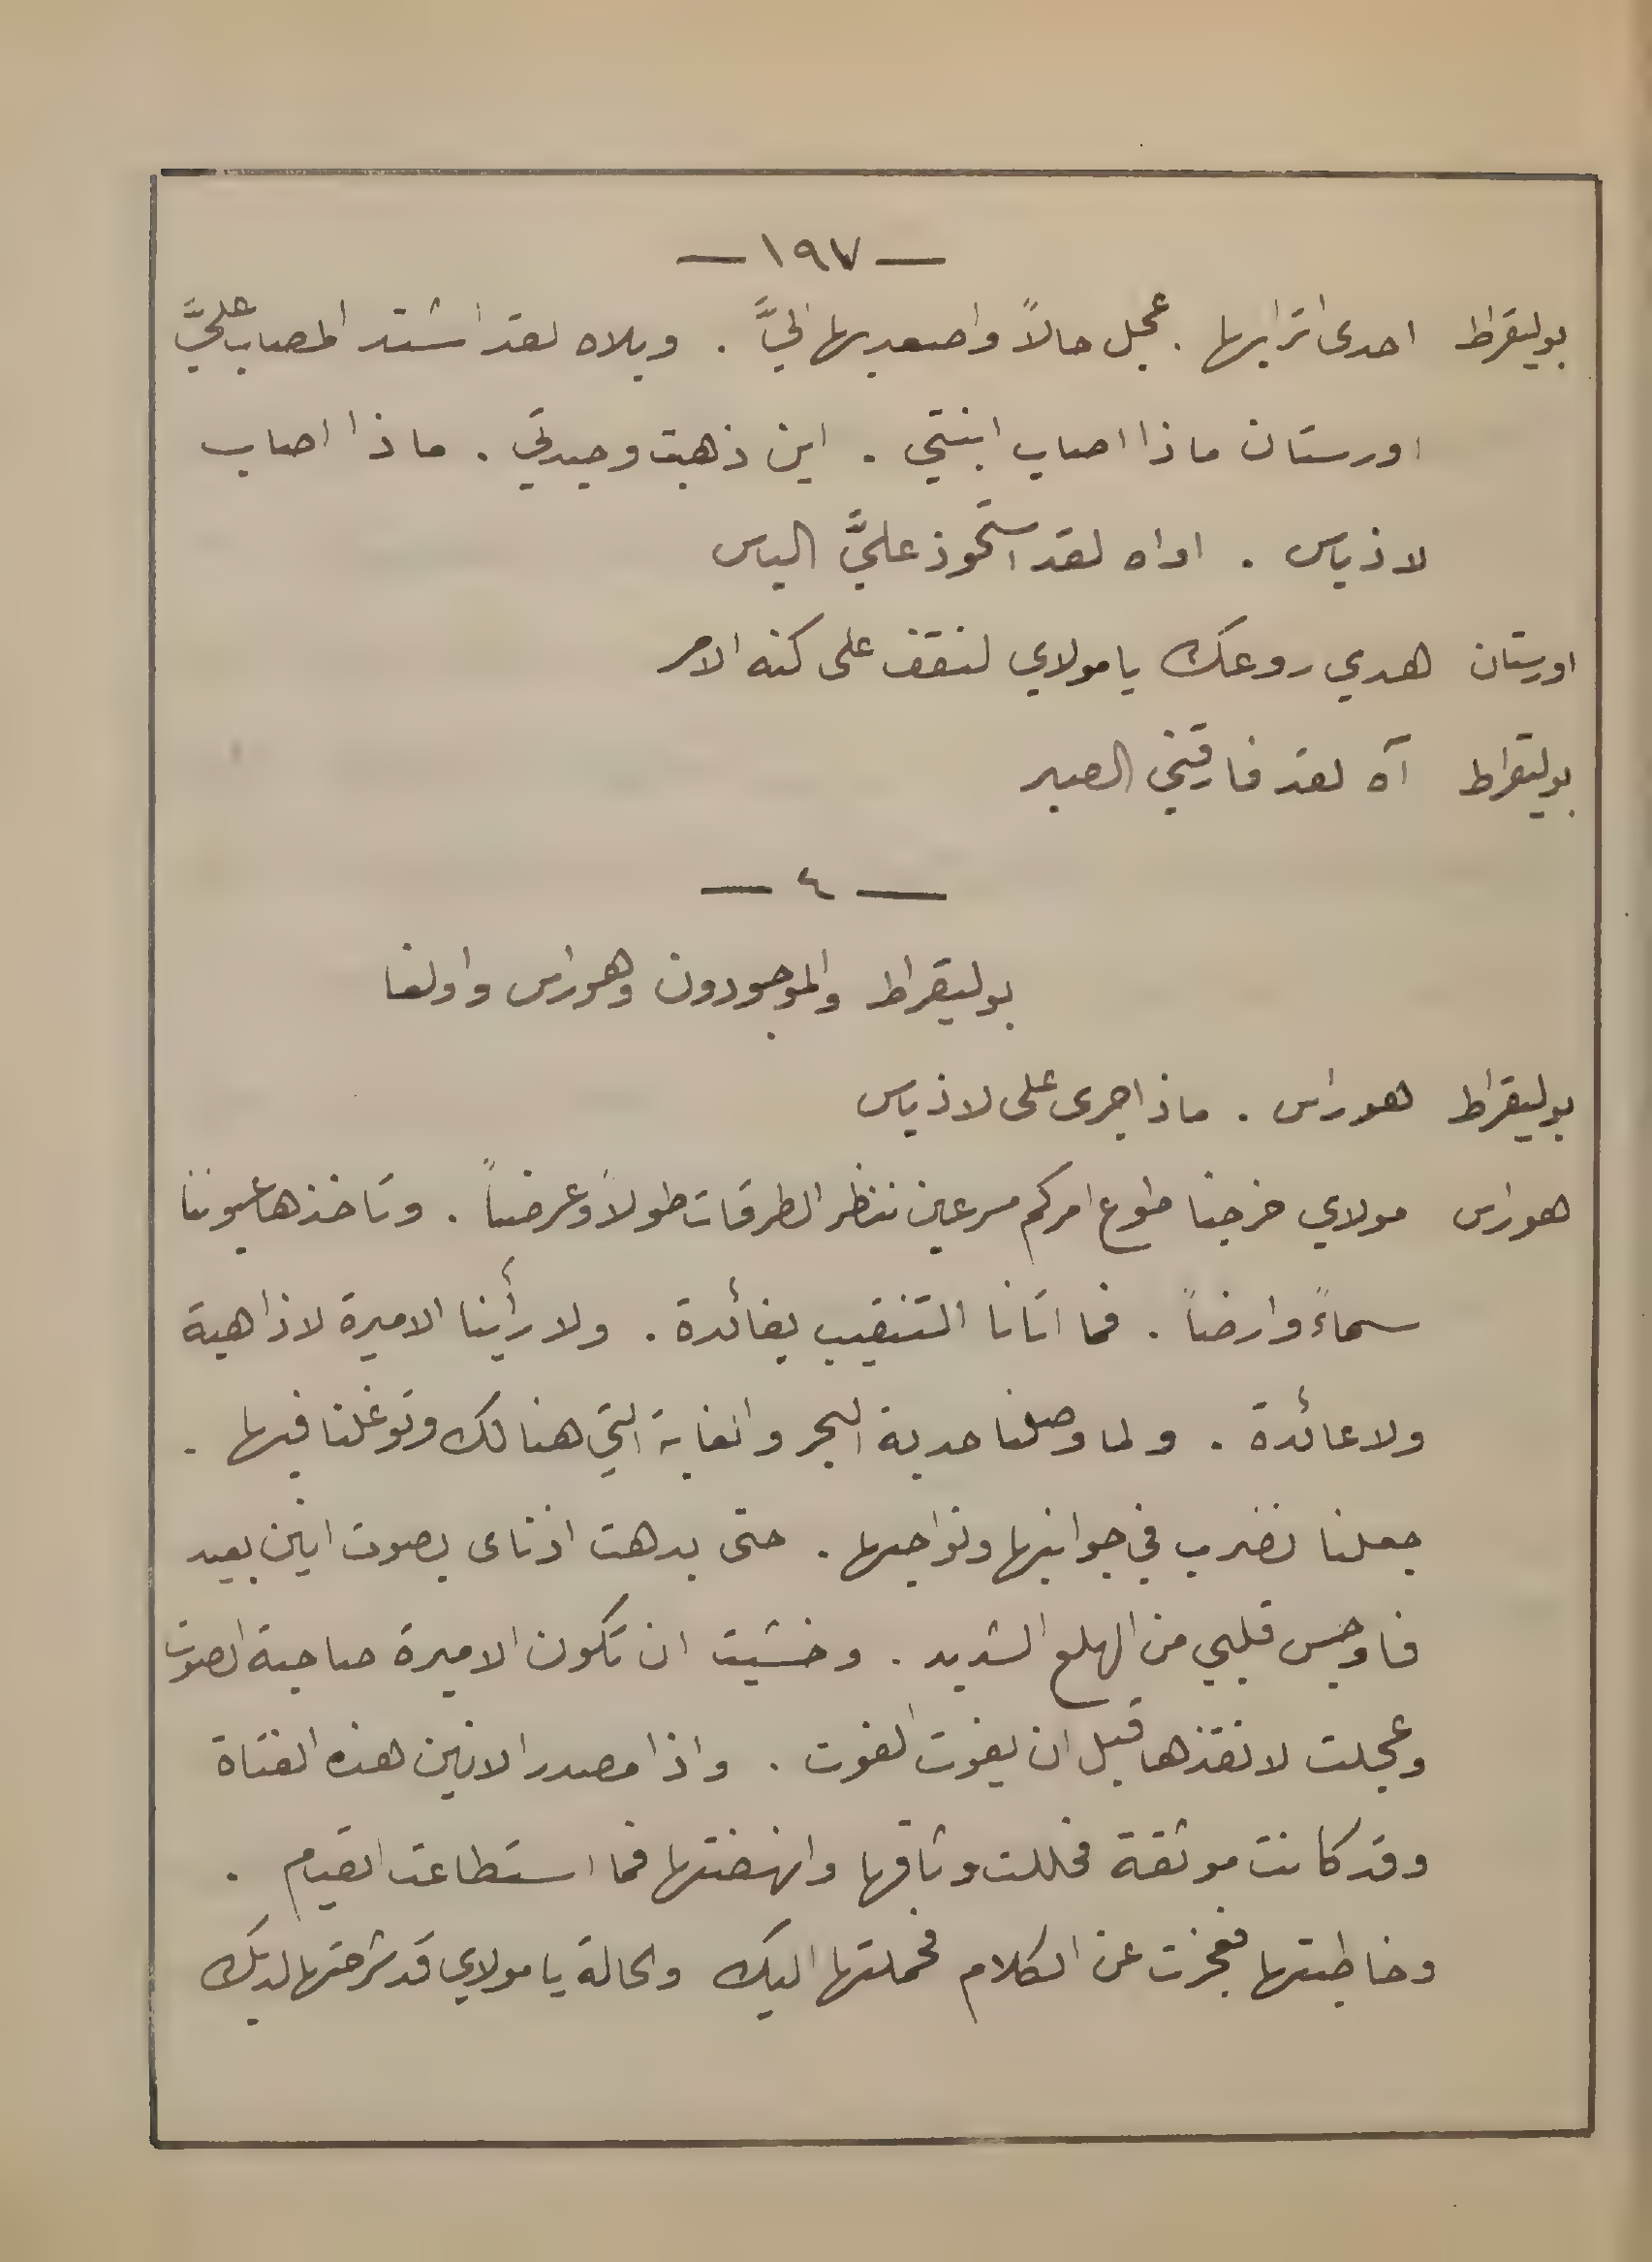 — ١٩٧ —
بوليقراط احدى اترابها . عجل حالاً واصعد بها اليَّ . ويلاه لقد اشتد المصاب عليَّ
اورستان ماذا اصاب ابنتي . اين ذهبت وحيدتي . ماذا اصاب
لاذياس . اواه لقد استحوذ عليَّ الياس
اورستان هدي روعك يا مولاي لنقف على كنه الامر
بوليقراط آه لقد فارقني الصبر
— ٤ —
بوليقراط والموجودون وهوراس واولغا
بوليقراط هوراس . ماذا جرى على لاذياس
هوراس مولاي خرجنا طوع امركم مسرعين ننظر الطرقات طولاً وعرضاً . وتاخذها عيوننا
سماءً وارضاً . فما اتانا التنقيب بفائدة . ولا رأينا الاميرة لا ذاهبة
ولا عائدة . ولما وصلنا حدبة البحر والغابة التي هنالك وتوغلنا فيها .
جعلنا نضرب في جوانبها ونواحيها . حتى بدهت اذناى بصوت انين بعيد
فاوجس قلبي من الهلع الشديد . وخشيت ان تكون الاميرة صاحبة الصوت
وعجلت لانقذها قبل ان يفوت الفوت . واذا مصدر الانين هذه الفتاة
وقد كانت موثقة فحللت وثاقها وانهضتها فما استطاعت القيام .
وخاطبتها فعجزت عن الكلام فحملتها اليك والحالة يا مولاي قد شرحتها لديك